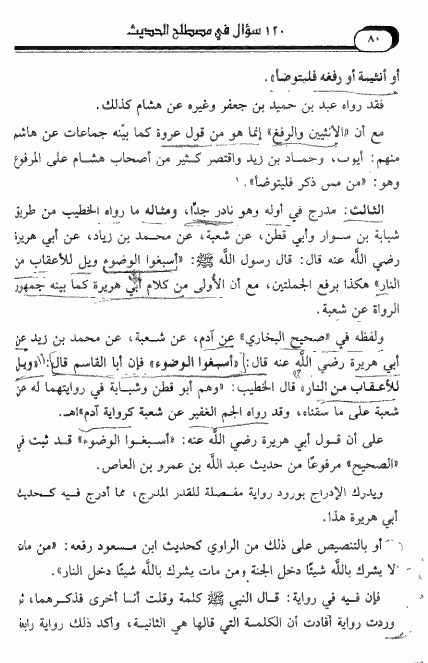 ١٢٠ سؤال في مصطلح الحديث
٨٠
أو أنثييه أو رفغه فليتوضأ».
فقد رواه عبد بن حميد بن جعفر وغيره عن هشام كذلك.
مع أن «الأنثيين والرفغ» إنما هو من قول عروة كما بيّنه جماعات عن هاشم
منهم: أيوب، وحماد بن زيد واقتصر كثير من أصحاب هشام على المرفوع
وهو: «من مس ذكر فليتوضأ».
الثالث: مدرج في أوله وهو نادر جدًّا، ومثاله ما رواه الخطيب من طريق
شبابة بن سوار وأبي قطن، عن شعبة، عن محمد بن زياد، عن أبي هريرة
رضي اللَّه عنه قال: قال رسول اللَّه ﷺ: «أسبغوا الوضوء ويل للأعقاب من
النار» هكذا برفع الجملتين، مع أن الأولى من كلام أبي هريرة كما بينه جمهور
الرواة عن شعبة.
ولفظه في «صحيح البخاري» عن آدم، عن شعبة، عن محمد بن زيد عن
أبي هريرة رضي اللَّه عنه قال: «أسبغوا الوضوء» فإن أبا القاسم قال: «ويل
للأعقاب من النار» قال الخطيب: «وهم أبو قطن وشبابة في روايتهما له عن
شعبة على ما سقناه، وقد رواه الجم الغفير عن شعبة كرواية آدم» اهـ.
على أن قول أبي هريرة رضي اللَّه عنه: «أسبغوا الوضوء» قد ثبت في
«الصحيح» مرفوعًا من حديث عبد اللَّه بن عمرو بن العاص.
ويدرك الإدراج بورود رواية مفصلة للقدر المدرج، مما أدرج فيه كحديث
أبي هريرة هذا.
أو بالتنصيص على ذلك من الراوي كحديث ابن مسعود رفعه: «من مات
لا يشرك باللَّه شيئًا دخل الجنة ومن مات يشرك باللَّه شيئًا دخل النار».
فإن فيه في رواية: قال النبي ﷺ كلمة وقلت أنا أخرى فذكرهما، ثم
وردت رواية أفادت أن الكلمة التي قالها هي الثانية، وأكد ذلك رواية رابعة